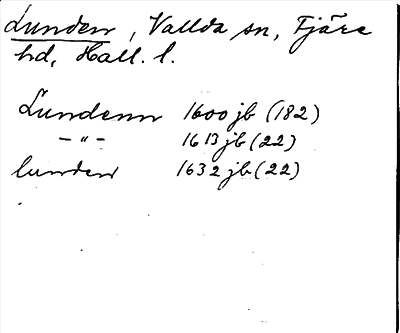 Lunden, Vallda sn, Fjäre
hd, Hall. l.
Lundenn 1600 jb (182)
— " — 1613 jb (22)
lunden 1632 jb (22)